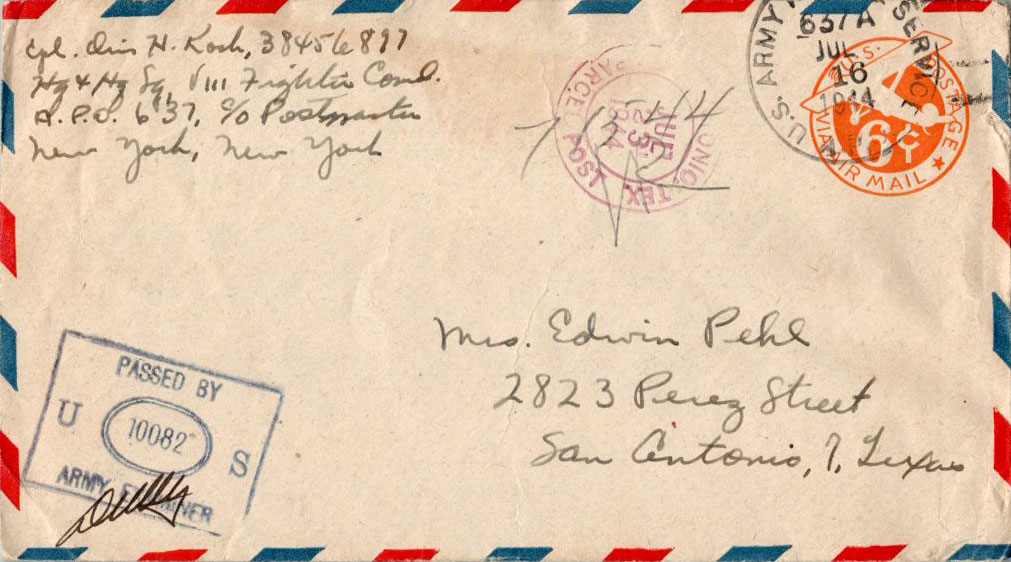 Cpl. Otis H. Koch, 38456897
Hq & Hq Sq, VIII Fighter Comd.
A.P.O. 637, c/o Postmaster
New York, New York
U.S. ARMY SERVICE
637A
JUL
16
1944
U.S. POSTAGE
6¢
VIA AIR MAIL
PARCEL POST
TEX.
1944
Mrs. Edwin Pehl
2823 Perez Street
San Antonio, 7, Texas
PASSED BY
U 10082 S
ARMY EXAMINER